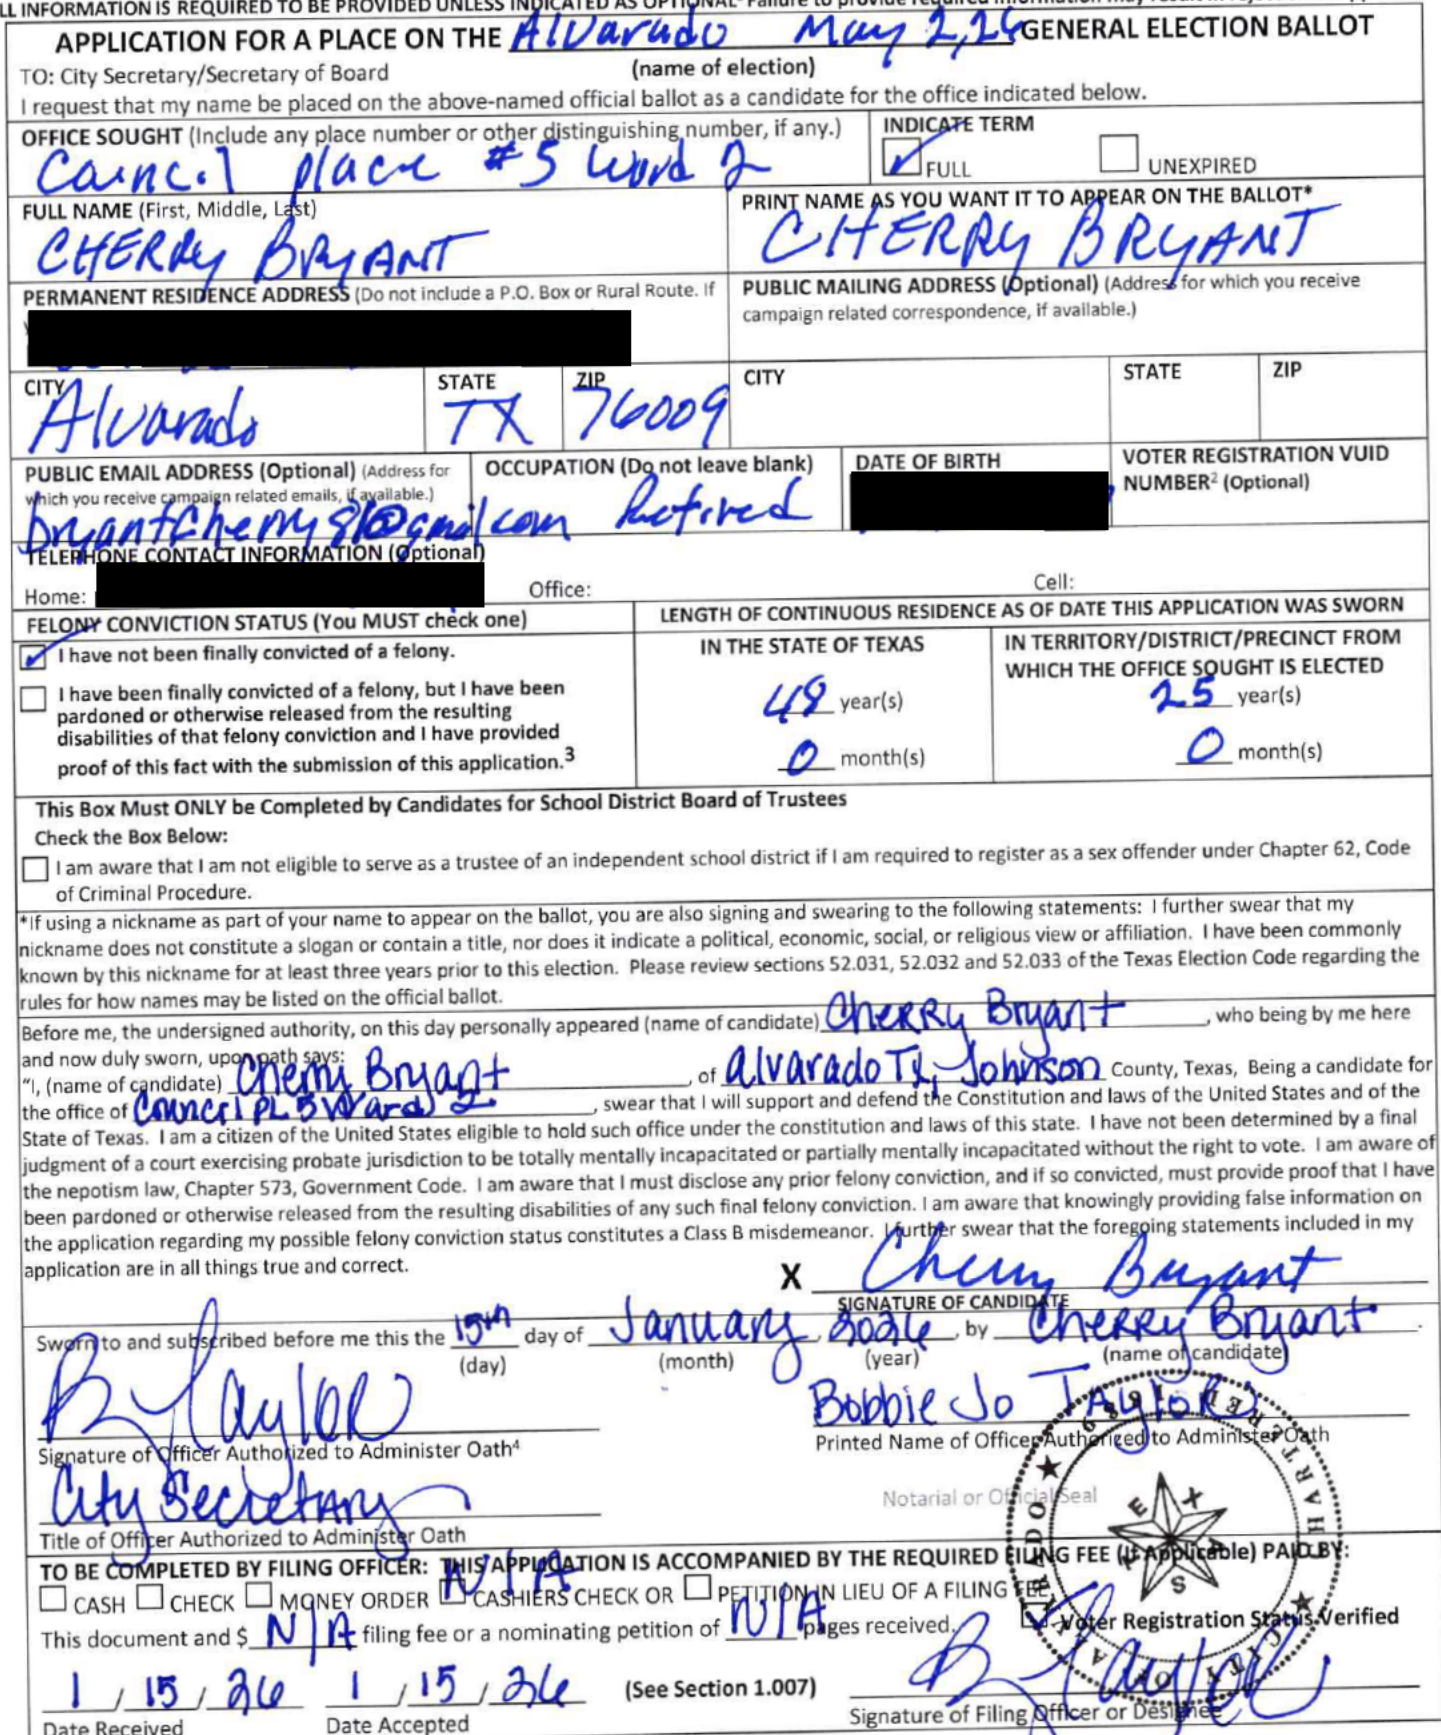 ALL INFORMATION IS REQUIRED TO BE PROVIDED UNLESS INDICATED AS OPTIONAL
APPLICATION FOR A PLACE ON THE Alvarado May 2, 26 GENERAL ELECTION BALLOT
TO: City Secretary/Secretary of Board (name of election)
I request that my name be placed on the above-named official ballot as a candidate for the office indicated below.
OFFICE SOUGHT (Include any place number or other distinguishing number, if any.)
Council place #5 Ward 2
INDICATE TERM
FULL UNEXPIRED
FULL NAME (First, Middle, Last)
CHERRY BRYANT
PRINT NAME AS YOU WANT IT TO APPEAR ON THE BALLOT*
CHERRY BRYANT
PERMANENT RESIDENCE ADDRESS (Do not include a P.O. Box or Rural Route. If
PUBLIC MAILING ADDRESS (Optional) (Address for which you receive
campaign related correspondence, if available.)
CITY STATE ZIP
Alvarado TX 76009
CITY STATE ZIP
PUBLIC EMAIL ADDRESS (Optional) (Address for
which you receive campaign related emails, if available.)
OCCUPATION (Do not leave blank)
Retired
DATE OF BIRTH
VOTER REGISTRATION VUID
NUMBER² (Optional)
TELEPHONE CONTACT INFORMATION (Optional)
Home: Office: Cell:
FELONY CONVICTION STATUS (You MUST check one)
I have not been finally convicted of a felony.
I have been finally convicted of a felony, but I have been
pardoned or otherwise released from the resulting
disabilities of that felony conviction and I have provided
proof of this fact with the submission of this application.³
LENGTH OF CONTINUOUS RESIDENCE AS OF DATE THIS APPLICATION WAS SWORN
IN THE STATE OF TEXAS
48 year(s)
0 month(s)
IN TERRITORY/DISTRICT/PRECINCT FROM
WHICH THE OFFICE SOUGHT IS ELECTED
25 year(s)
0 month(s)
This Box Must ONLY be Completed by Candidates for School District Board of Trustees
Check the Box Below:
I am aware that I am not eligible to serve as a trustee of an independent school district if I am required to register as a sex offender under Chapter 62, Code
of Criminal Procedure.
*If using a nickname as part of your name to appear on the ballot, you are also signing and swearing to the following statements: I further swear that my
nickname does not constitute a slogan or contain a title, nor does it indicate a political, economic, social, or religious view or affiliation. I have been commonly
known by this nickname for at least three years prior to this election. Please review sections 52.031, 52.032 and 52.033 of the Texas Election Code regarding the
rules for how names may be listed on the official ballot.
Before me, the undersigned authority, on this day personally appeared (name of candidate) Cherry Bryant, who being by me here
and now duly sworn, upon oath says:
"I, (name of candidate) Cherry Bryant, of Alvarado TX, Johnson County, Texas, Being a candidate for
the office of Council PL 5 Ward 2, swear that I will support and defend the Constitution and laws of the United States and of the
State of Texas. I am a citizen of the United States eligible to hold such office under the constitution and laws of this state. I have not been determined by a final
judgment of a court exercising probate jurisdiction to be totally mentally incapacitated or partially mentally incapacitated without the right to vote. I am aware of
the nepotism law, Chapter 573, Government Code. I am aware that I must disclose any prior felony conviction, and if so convicted, must provide proof that I have
been pardoned or otherwise released from the resulting disabilities of any such final felony conviction. I am aware that knowingly providing false information on
the application regarding my possible felony conviction status constitutes a Class B misdemeanor. I further swear that the foregoing statements included in my
application are in all things true and correct.
X Cherry Bryant
SIGNATURE OF CANDIDATE
Sworn to and subscribed before me this the 15th day of January, 2026, by Cherry Bryant.
(day) (month) (year) (name of candidate)
B Taylor
Signature of Officer Authorized to Administer Oath⁴
Bobbie Jo Taylor
Printed Name of Officer Authorized to Administer Oath
City Secretary
Title of Officer Authorized to Administer Oath
Notarial or Official Seal
CITY OF ALVARADO CHARTERED 1889 TEXAS
TO BE COMPLETED BY FILING OFFICER: THIS APPLICATION IS ACCOMPANIED BY THE REQUIRED FILING FEE (If Applicable) PAID BY:
N/A
CASH CHECK MONEY ORDER CASHIERS CHECK OR PETITION IN LIEU OF A FILING FEE.
This document and $ N/A filing fee or a nominating petition of N/A pages received. Voter Registration Status Verified
1 / 15 / 26 1 / 15 / 26 (See Section 1.007) B Taylor
Date Received Date Accepted Signature of Filing Officer or Designee